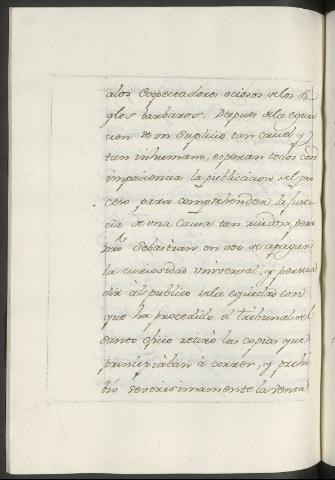 alos espectadores ociosos de los Si
glos barbaros. Despues de la egecu
cion de un suplicio tan cruel, y
tan inhumano, esperan todos con
impaciencia la publicacion del pro
ceso, para comprehender la Justi
cia de una Causa tan ruidosa, pero
en vez de apagar
la curiosidad universal, y persua
dir àl publico de la equidad con
que ha procedido el tribunal del
santo oficio retirò las copias que
principiaban à correr, y prohi
biò severisimamente la venta